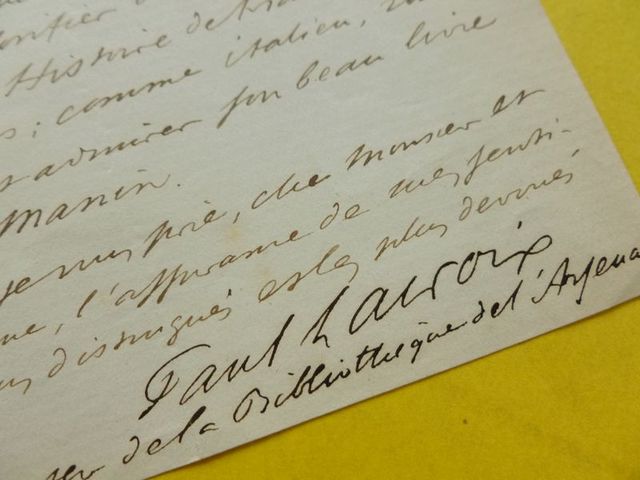 Histoire de
; comme italien,
admirer son beau livre
manin.
je vous prie, cher monsieur et
l'assurance de mes senti-
distingués et les plus dévoués
Paul Lacroix
de la Bibliothèque de l'Arsena